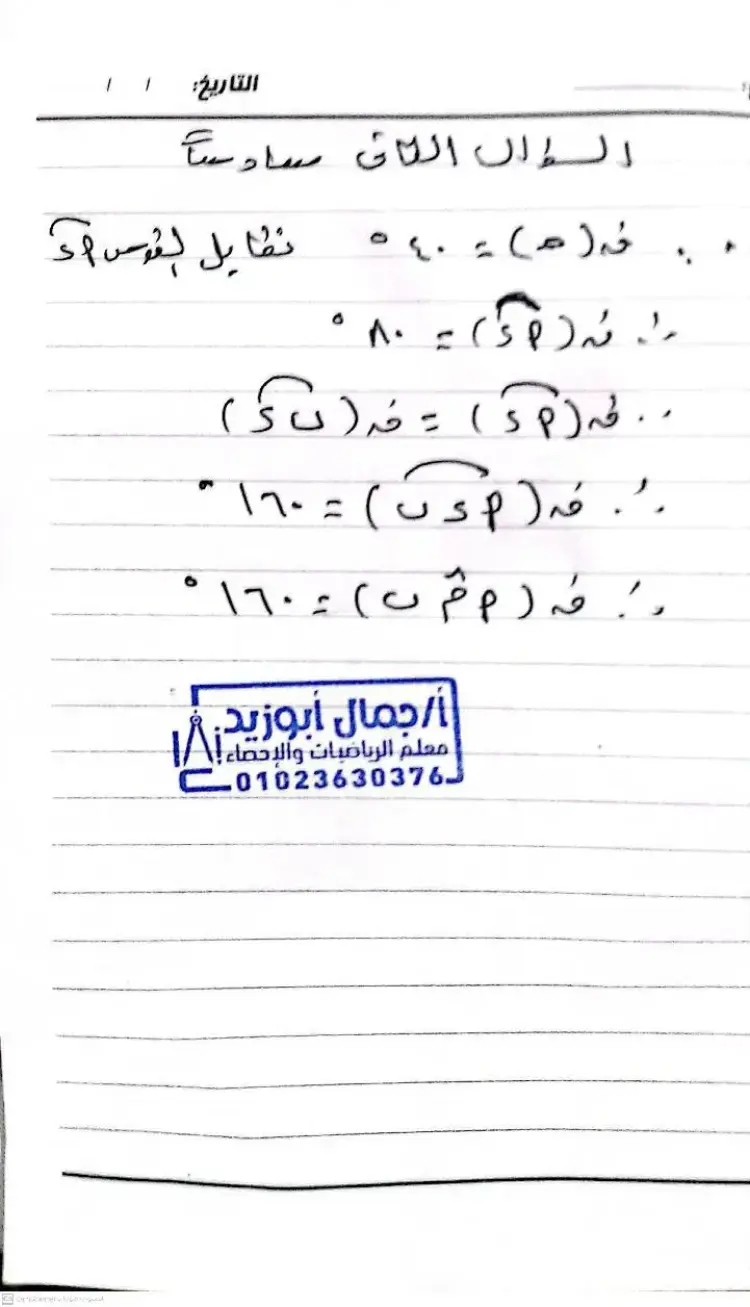 التاريخ: / /
السؤال الثانى سادساً
∵ ق(هـ) = ٤٠° تقابل القوس أ د
∴ ق(أ د) = ٨٠°
∵ ق(أ د) = ق(ب د)
∴ ق(أ د ب) = ١٦٠°
∴ ق(أ م ب) = ١٦٠°
أ/جمال أبوزيد
معلم الرياضيات والإحصاء
01023630376